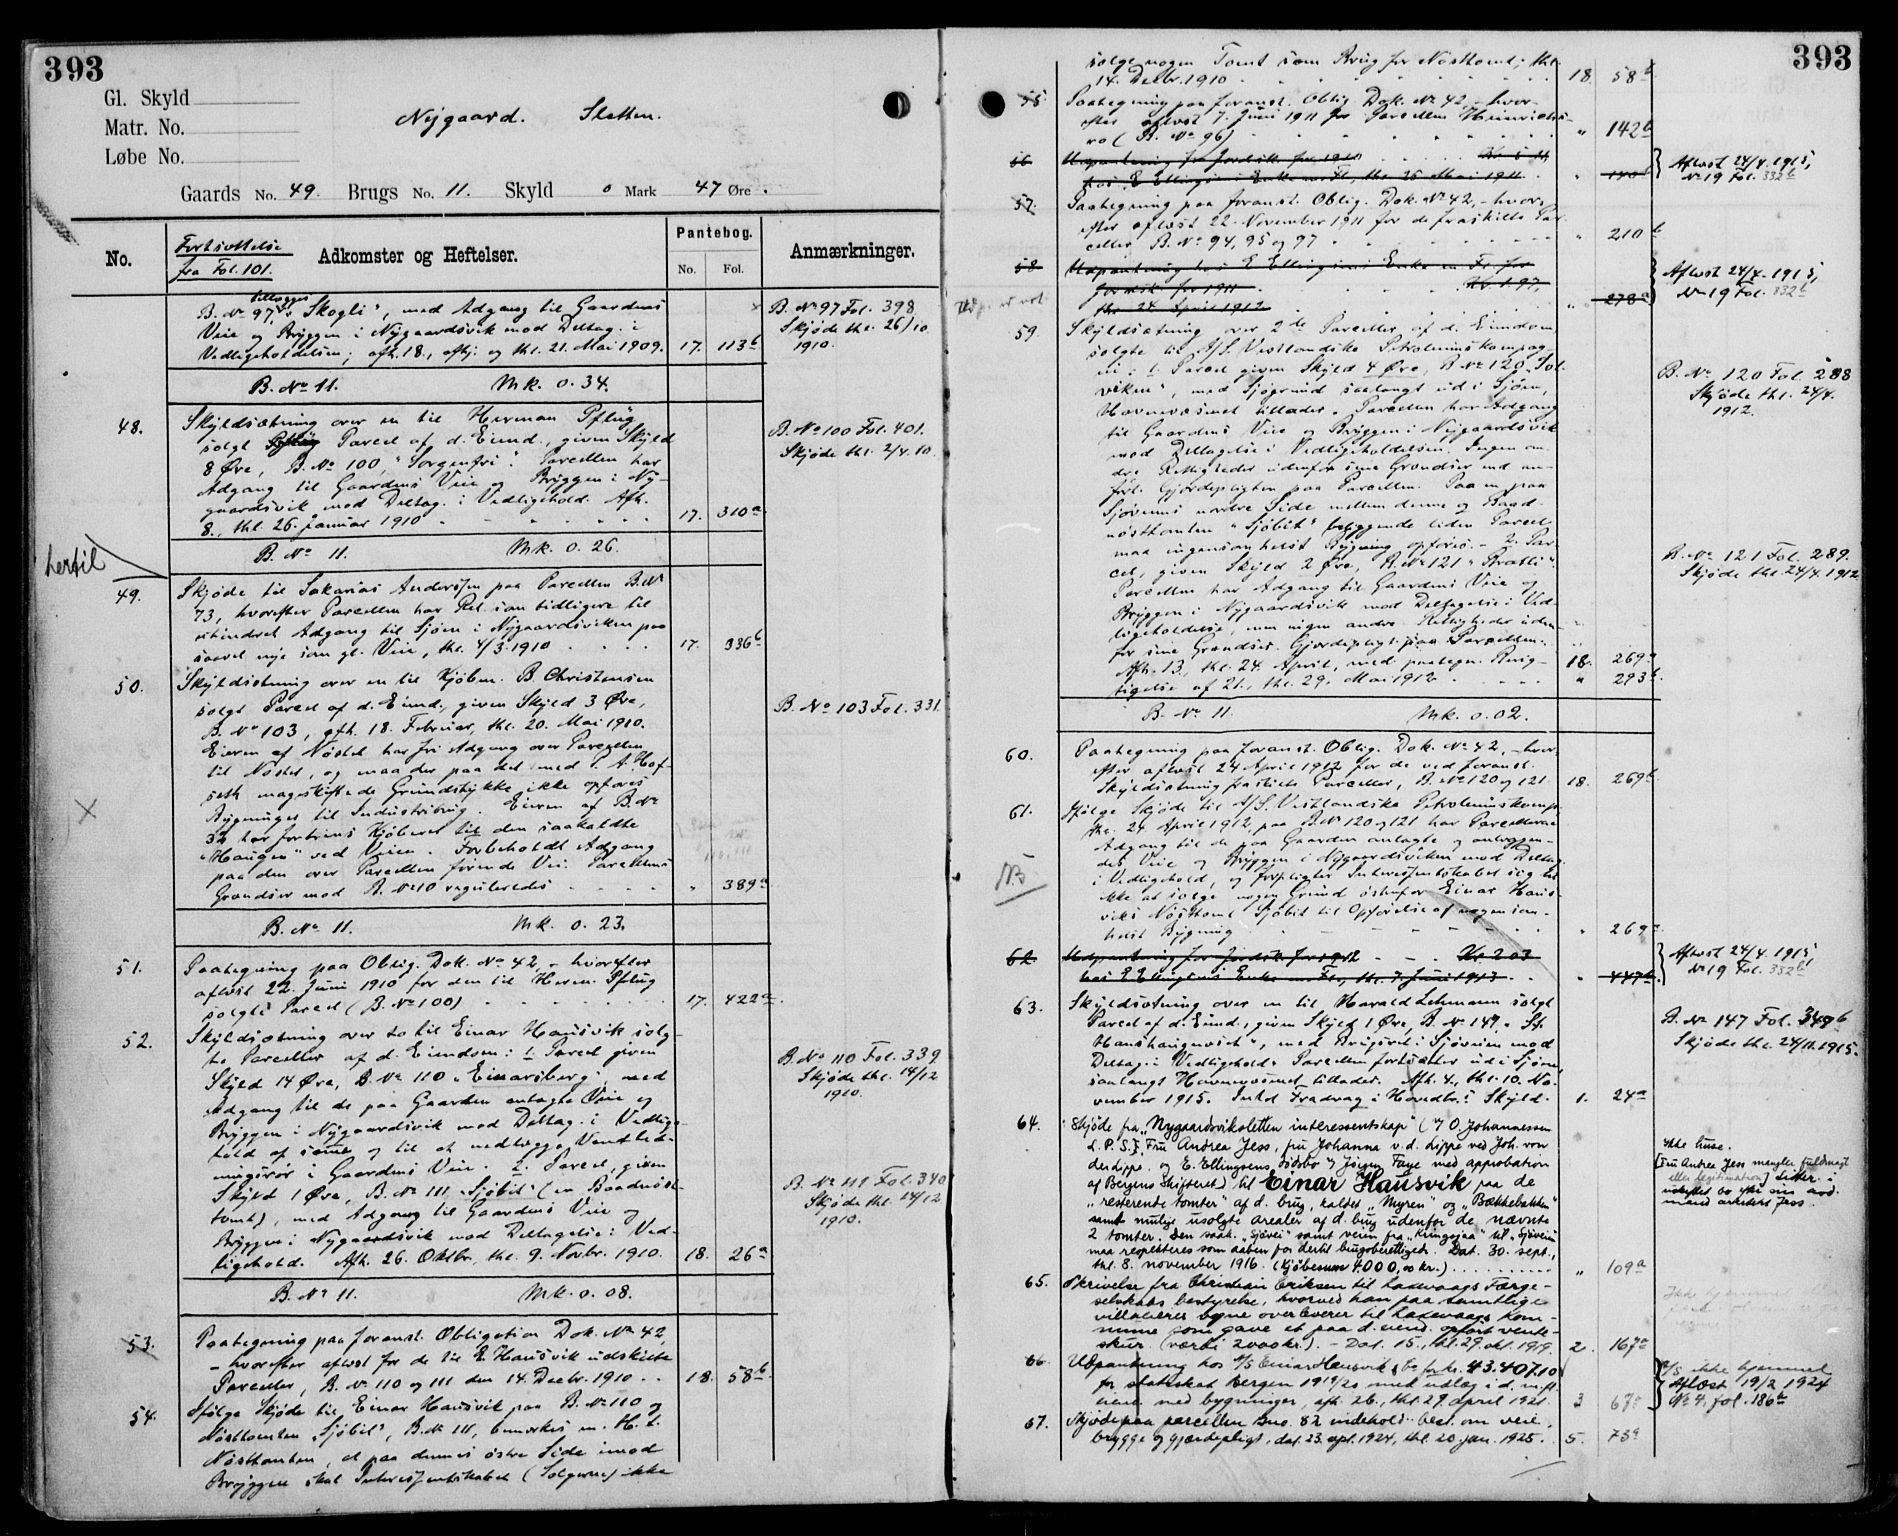 393
Gl. Skyld
Matr. No.
Løbe No.
Nygaard. Sletten.
Gaards No. 49. Brugs No. 11. Skyld 0 Mark 47 Øre.
No.
Fortsættelse
fra Fol. 101.
Adkomster og Heftelser.
Pantebog.
No. Fol.
Anmærkninger.
tillægges
B. No 97, "Skogli", med Adgang til Gaardens
Veie og Bryggen i Nygaardsvik mod Deltag. i
Vedligeholdelsen; afh. 18., afhj. og thl. 21. Mai 1909. 17. 113b
B. No 97 Fol. 398
Skjøde thl. 26/10
1910.
B. No 11. Mk. 0.34.
48. Skyldsætning over en til Herman Pflug
solgt Parcel af d. Eiend., given Skyld
8 Øre, B. No 100, "Sorgenfri". Parcellen har
Adgang til Gaardens Veie og Bryggen i Ny-
gaardsvik mod Deltag. i Vedligehold. Afh.
8., thl. 26. Januar 1910 17. 310a
B. No 100 Fol. 401.
Skjøde thl. 2/4. 10.
B. No 11. Mk. 0.26.
hertil
49. Skjøde til Sakarias Andersen paa Parcellen B. No
73, hvorefter Parcellen har Ret som tidligere til
uhindret Adgang til Sjøen i Nygaardsviken paa
saavel nye som gl. Veie, thl. 4/3 1910 17. 336b
50. Skyldsætning over en til Kjøbm. B. Christensen
solgt Parcel af d. Eiend., given Skyld 3 Øre,
B. No 103, afh. 18. Februar, thl. 20. Mai 1910.
Eieren af Nøstet har fri Adgang over Parcellen
til Nøstet, og maa der paa det med A. Hof-
seth mageskiftede Grundstykke ikke opføres
Bygninger til Industribrug. Eieren af B. No
32 har fortrins Kjøberet til den saakaldte
"Haugen" ved Veien. Forbeholdt Adgang
paa den over Parcellen førende Vei. Parcellens
Grændser mod B. No 10 reguleredes " 389a
B. No 103 Fol. 331.
B. No 11. Mk. 0.23.
51. Paategning paa Oblig. Dok. No 42, - hvorefter
aflæst 22. Juni 1910 for den til Herm. Pflug
solgte Parcel (B. No 100) 17. 422a
52. Skyldsætning over to til Einar Hausvik solg-
te Parceller af d. Eiendom: 1. Parcel given
Skyld 14 Øre, B. No 110 "Einarsberg", med
Adgang til de paa Gaarden anlagte Veie og
Bryggen i Nygaardsvik mod Deltag. i Vedlige-
hold af samme og til at nedlægge Vandled-
ningsrør i Gaardens Veie. 2. Parcel, given
Skyld 1 Øre, B. No 111, "Sjøbit" (en Baadnøst-
tomt), med Adgang til Gaardens Veie og
Bryggen i Nygaardsvik mod Deltagelse i Ved-
ligehold. Afh. 26. Oktbr., thl. 9. Novbr. 1910. 18. 26a
B. No 110 Fol. 339
Skjøde thl. 14/12
1910.
B. No 111 Fol. 340
Skjøde thl. 14/12
1910.
B. No 11. Mk. 0.08.
53. Paategning paa foranst. Obligation Dok. No 42,
- hvorefter aflæst for de til E. Hausvik udskilte
Parceller, B. No 110 og 111 den 14. Decbr. 1910 .. 18. 58b
54. Ifølge Skjøde til Einar Hausvik paa B. No 110 og
Nøsttomten "Sjøbit", B. No 111, bemerkes m. H. t.
Nøsttomten, at paa dennes østre Side imod
Bryggen skal Interessentskabet (Sælgerne) ikke
393
sælge nogen Tomt som Brug for Nøsttomt; thl.
14. Decbr. 1910 18. 58b
55. Paategning paa foranst. Oblig. Dok. No 42, - hvor-
efter aflæst 7. Juni 1911 for Parcellen Heinrichs-
ro (B. No 96) " 142b
56. Udpantning for Jordsk. for 1910 Kr.
hos E. Ellingsens Enke m. Fl., thl. 25 Mai 1911 "
Aflæst 24/4. 1915,
No 19 Fol. 332b
57. Paategning paa foranst. Oblig. Dok. No 42, - hvor-
efter aflæst 22. November 1911 for de fraskilte Par-
celler B. No 94, 95 og 97 " 210b
58. Udpantning hos E. Ellingsens Enke m. Fl. for
Jordsk. for 1911 Kr. 1.97,
thl. 24. April 1912 " 278a
Aflæst 24/4. 1915,
No 19 Fol. 332b
59. Skyldsætning over 2de Parceller af d. Eiendom,
solgte til A/S. Vestlandske Petroleumskompag-
ni: 1. Parcel given Skyld 4 Øre, B. No 120 "Sol-
viken", med Sjøgrund saalangt ud i Sjøen,
Havnevæsenet tillader. Parcellen har Adgang
til Gaardens Veie og Bryggen i Nygaardsvik
mod Deltagelse i Vedligeholdelsen. Ingen an-
dre Rettigheder udenfor sine Grændser end an-
ført. Gjerdepligten paa Parcellen. Paa en paa
Sjøveiens nordre Side mellem denne og Baad-
nøsttomten "Sjøbit" beliggende liden Parcel
maa ingensomhelst Bygning opføres. - 2. Par-
cel, given Skyld 2 Øre, B. No 121 "Bratli".
Parcellen har Adgang til Gaardens Veie og
Bryggen i Nygaardsvik mod Deltagelse i Ved-
ligeholdelse, men ingen andre Rettigheder uden-
for sine Grændser. Gjerdepligt paa Parcellen.
Afh. 13., thl. 24. April, med paategn. Berig- 18. 269a
tigelse af 21., thl. 29. Mai 1912 " 293b
B. No 120 Fol. 288
Skjøde thl. 24/4.
1912.
B. No 121 Fol. 289.
Skjøde thl. 24/4. 1912.
B. No 11. Mk. 0.02.
60. Paategning paa foranst. Oblig. Dok. No 42, - hvor-
efter aflæst 24 April 1912 for de ved foranst.
Skyldsætning fraskilte Parceller, B. No 120 og 121 18. 269b
61. Ifølge Skjøde til A/S. Vestlandske Petroleumskomp.
thl. 24. April 1912, paa B. No 120 og 121 har Parcellerne
Adgang til de paa Gaarden anlagte og anlæggen-
des Veie og Bryggen i Nygaardsviken mod Deltag.
i Vedligehold, og forpligter Interessentskabet sig til
ikke at sælge nogen Grund østenfor Einar Haus-
viks Nøsttomt Sjøbit til Opførelse af nogensom-
helst Bygning " 269b
NB
62. Udpantning for Jordsk. for 1912 Kr. 2.03
hos E. Ellingsens Enke m. Fl., thl. 7. Juni 1913 " 447b
Aflæst 24/4. 1915,
No 19 Fol. 332b
63. Skyldsætning over en til Harald Lehmann solgt
Parcel af d. Eiend., given Skyld 1 Øre, B. No 147, "St.
Hanshaugnæset", med Brugsret i Sjøveien mod
Deltag. i Vedligehold. Parcellen fortsætter ud i Sjøen,
saalangt Havnevæsenet tillader. Afh. 4., thl. 10. No-
vember 1915. i Hovedbr. Skyld. 1. 24a
B. No 147 Fol. 349b
Skjøde thl. 24/11. 1915.
64. Skjøde fra "Nygaardsviksletten interessentskap" (v/ O. Johannessen
d. P. S. Fru Andrea Jess, fru Johanna v. d. Lippe ved Joh. von
der Lippe, og E. Ellingsens dødsbo v/ Jørgen Faye med approbation
af Bergens Skifteret) til Einar Hausvik paa de
"resterende tomter" af d. brug, kaldet "Myren" og "Bækkebakken"
samt mulige usolgte arealer af d. brug udenfor de nævnte
2 tomter. Den saak. "Sjøvei" samt veien fra "Kringsjaa" til "Sjøveien"
maa respekteres som aaben for dertil brugsberettigede. Dat. 30. sept.,
thl. 8. november 1916. (Kjøbesum 4000,00 kr.) " 109a
Ikke huse.
[Fru Andrea Jess mangler fuldmagt
eller legitimation] sitter i
uskiftet bo efter sin avd.
mand arkitekt Jess.
65. Skrivelse fra Christian Eriksen til Laksevaags Færge-
selskabs bestyrelse, hvorved han paa samtlige
villaeieres vegne overleverer til Laksevaags kom-
mune som gave et paa d. eiend. opført vente-
skur. (værdi 2000 kr.). - Dat. 15., thl. 29. okt. 1919. 2. 167a
66. Utpantning hos A/S Einar Hausvik & Co for kr. 43.407,10
for statsskat Bergen 1919/20 med utlæg i d. m. fl.
eiend. med bygninger, afh. 26., thl. 29. april 1921. 3 67a
A/S ikke hjemmel
Aflæst 19/2 1924
No 4, fol. 186b
67. Skjøde paa parcellen Bno. 82 indehold. best. om veie,
brygge og gjærdepligt, dat. 23. apl. 1924, thl. 20 jan. 1925. 5. 73a